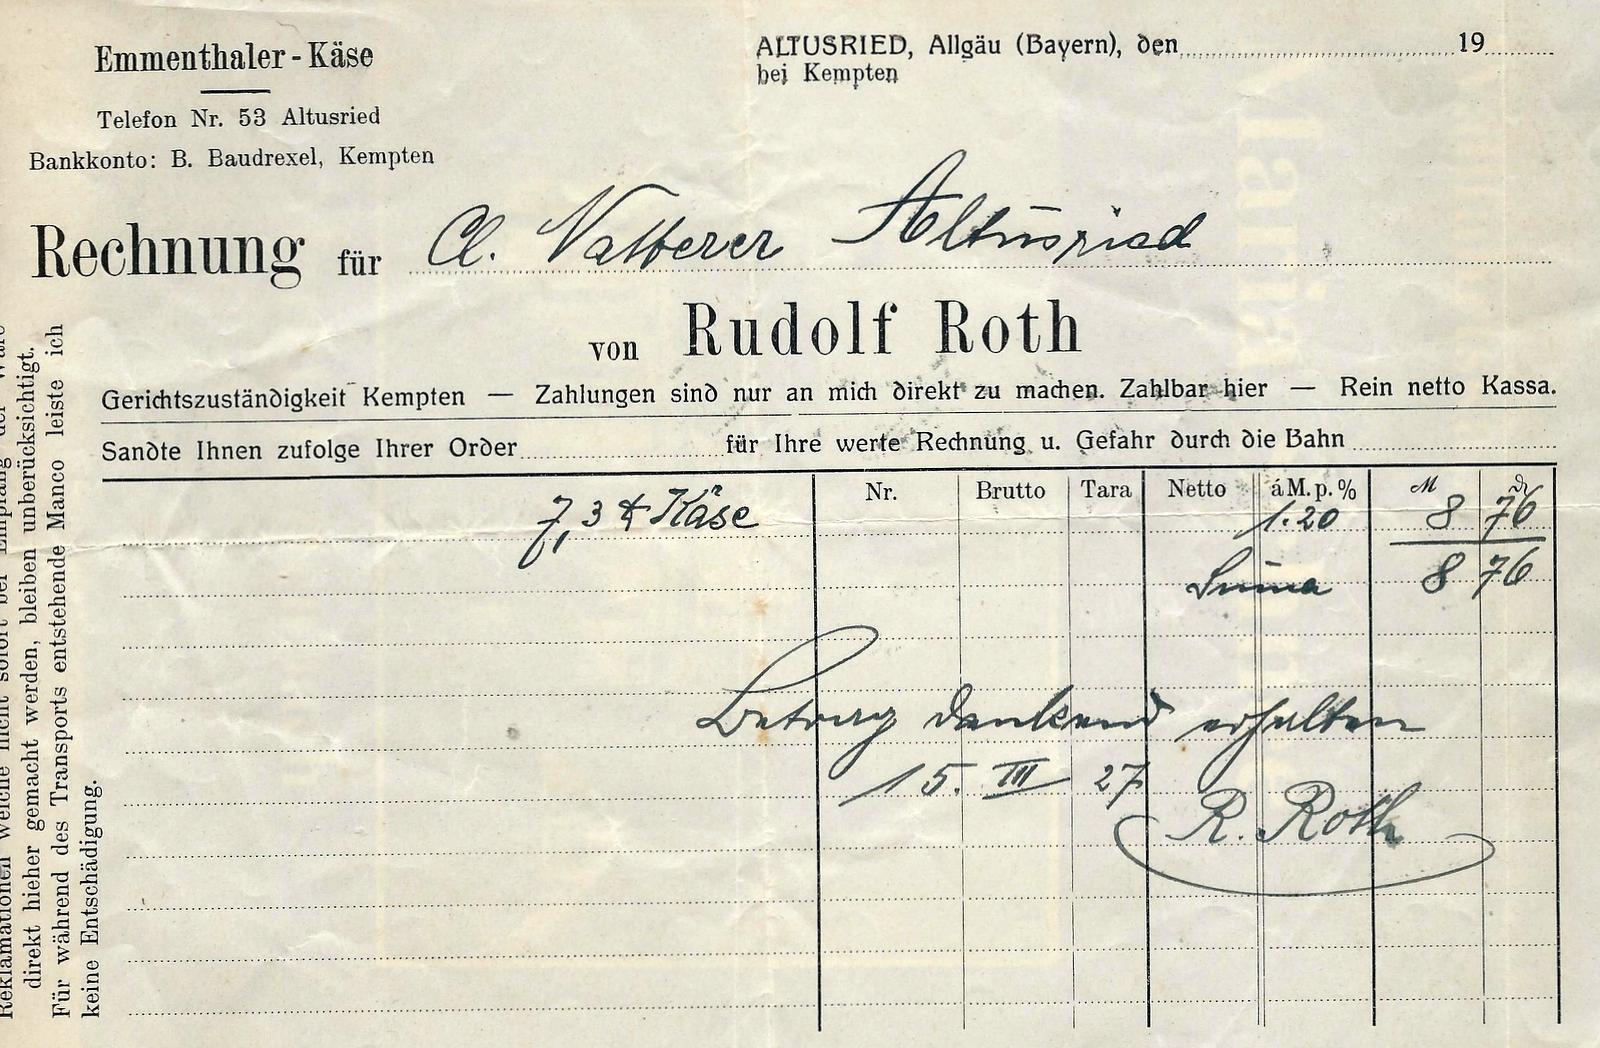 Emmenthaler-Käse
Telefon Nr. 53 Altusried
Bankkonto: B. Baudrexel, Kempten
ALTUSRIED, Allgäu (Bayern), den 19
bei Kempten
Rechnung für Cl. Natterer Altusried
von Rudolf Roth
Gerichtszuständigkeit Kempten — Zahlungen sind nur an mich direkt zu machen. Zahlbar hier — Rein netto Kassa.
Sandte Ihnen zufolge Ihrer Order für Ihre werte Rechnung u. Gefahr durch die Bahn
Nr. Brutto Tara Netto á M. p. % M ₰
7,3 ℔ Käse 1.20 8 76
Suma 8 76
Betrag dankend erhalten
15. III 27
R. Roth
Reklamationen welche nicht sofort bei Empfang der Ware
direkt hieher gemacht werden, bleiben unberücksichtigt.
Für während des Transports entstehende Manco leiste ich
keine Entschädigung.